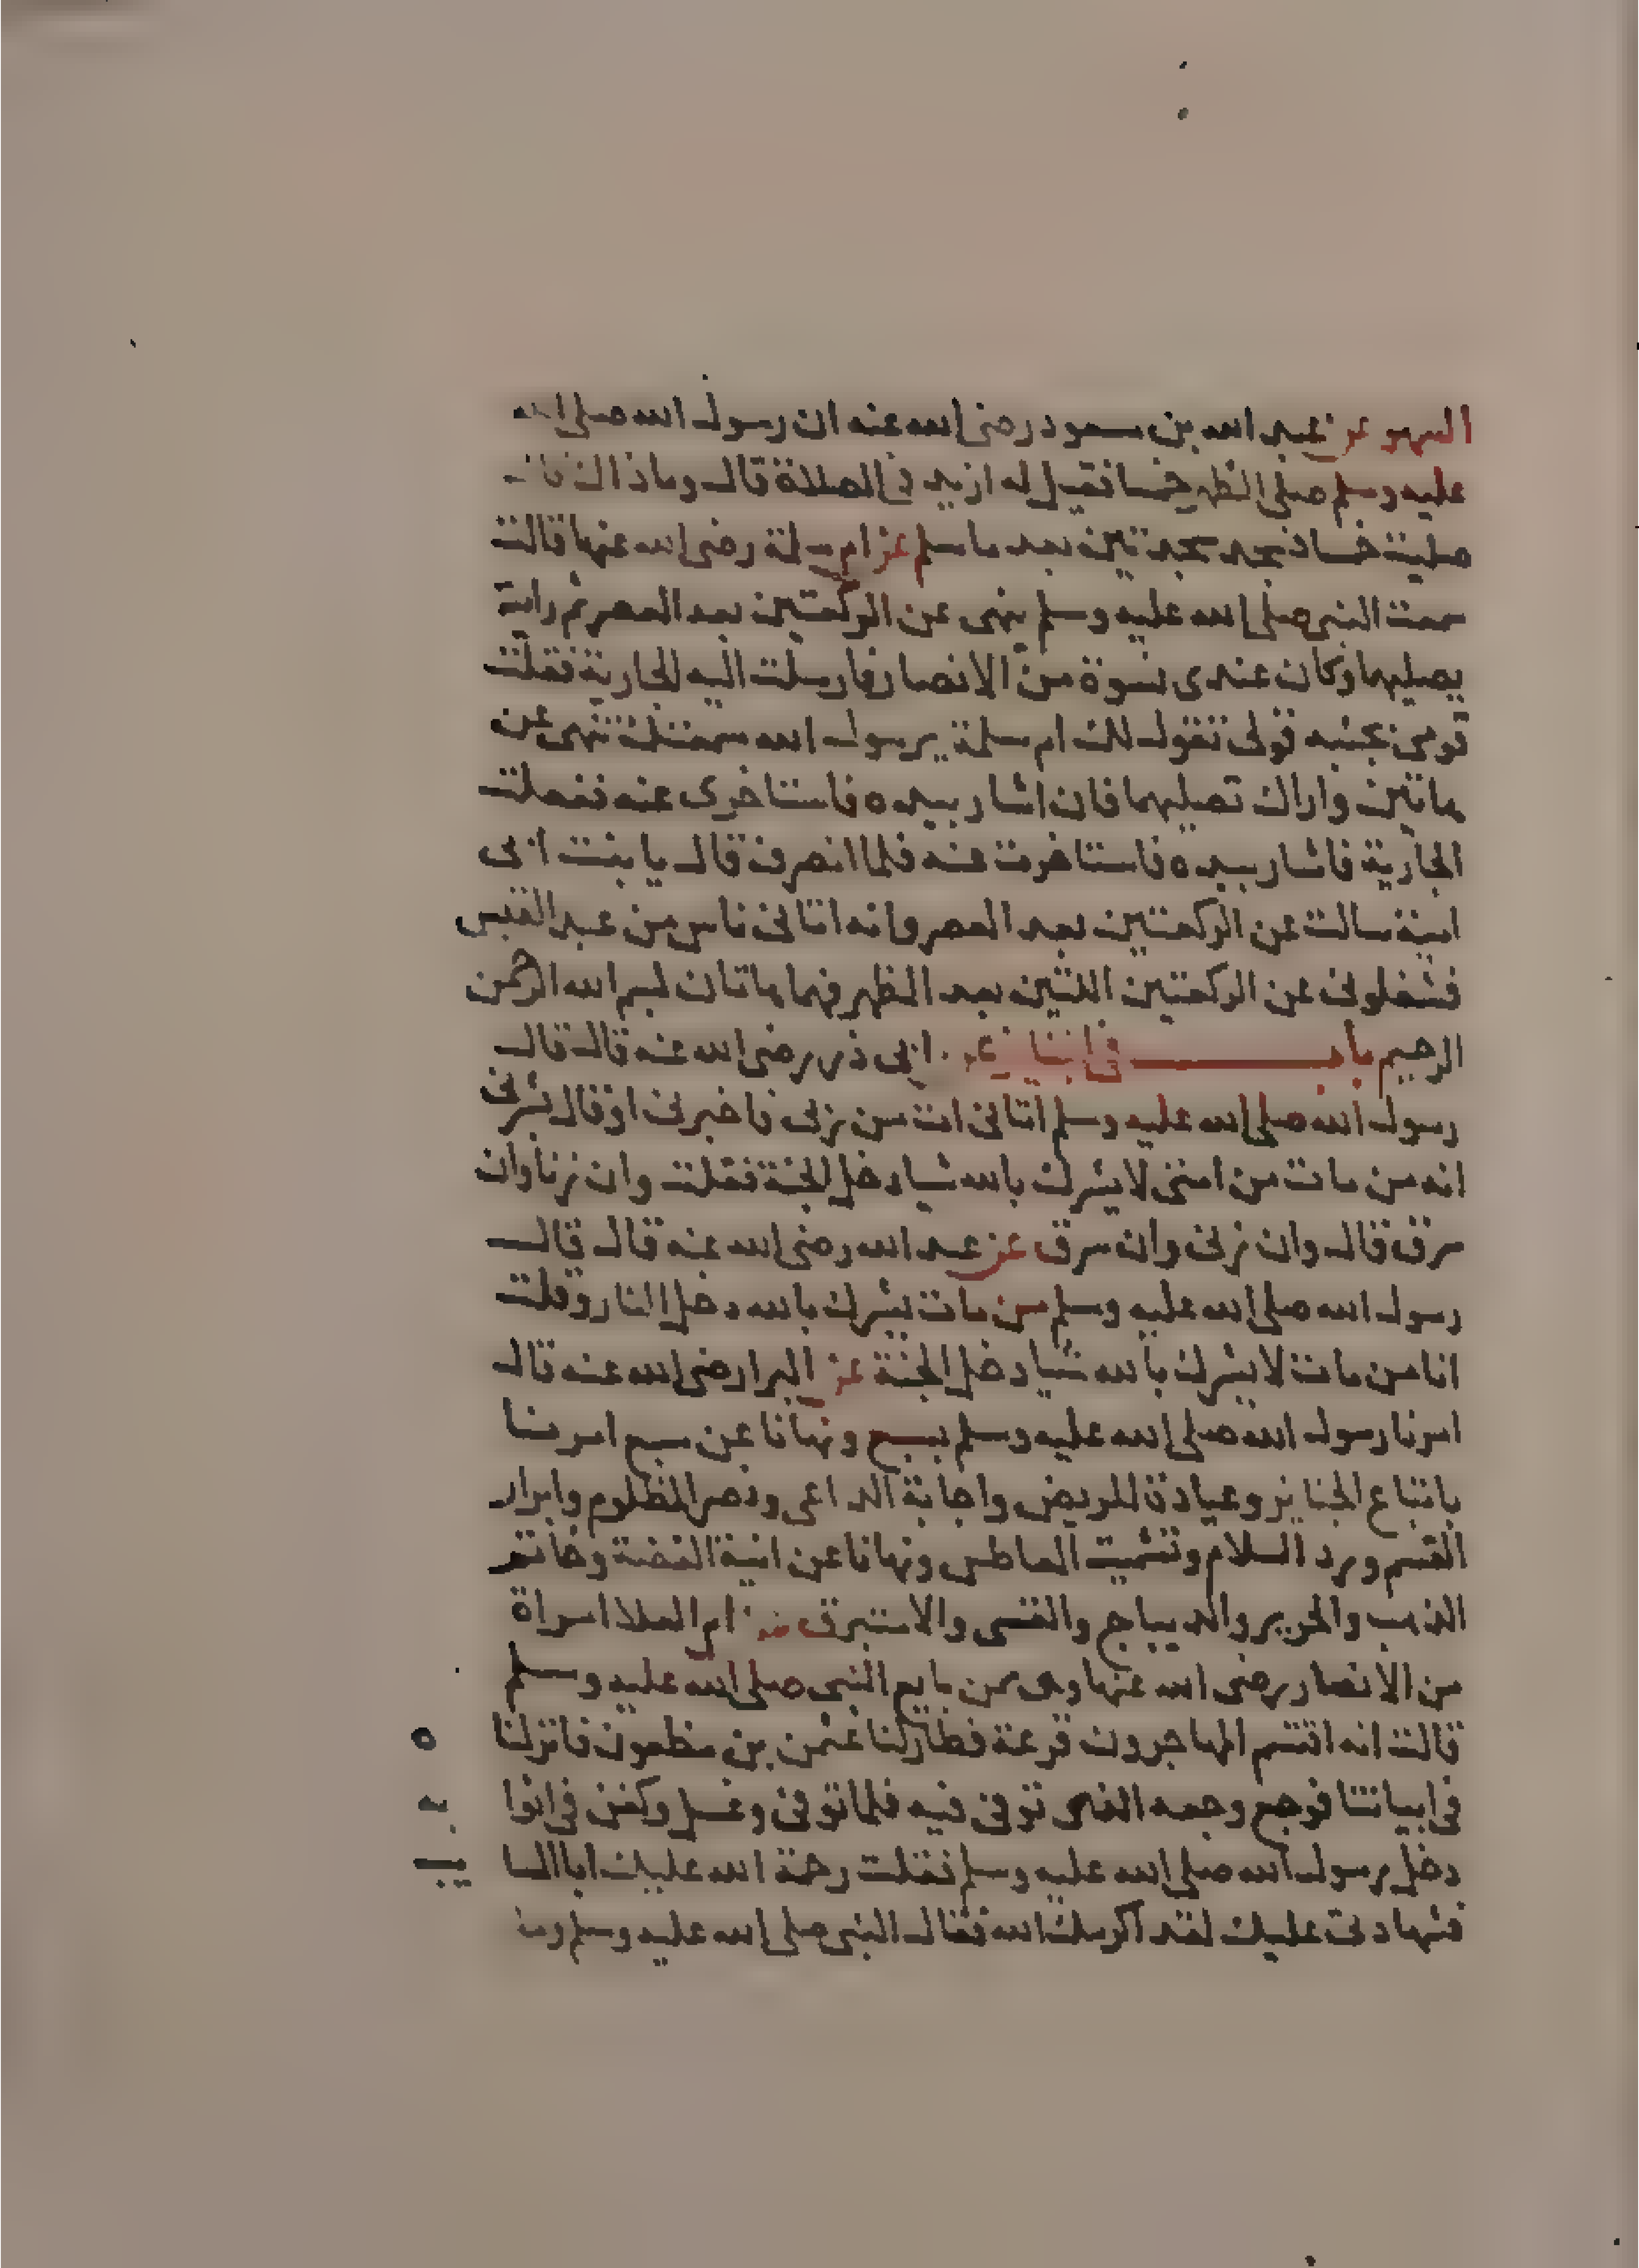 السهو عن عبد الله بن مسعود رضى الله عنه ان رسول الله صلى الله
عليه وسلم صلى الظهر خمسا فقيل له ازيد فى الصلاة قال وما ذاك قال
صليت خمسا فسجد سجدتين بعد ما سلم عن ام سلمة رضى الله عنها قالت
سمعت النبى صلى الله عليه وسلم ينهى عن الركعتين بعد العصر ثم رايته
يصليهما وكان عندى نسوة من الانصار فارسلت اليه الجارية فقلت
قومى بجنبه قولى تقول لك ام سلمة يرسول الله سمعتك تنهى عن
هاتين واراك تصليهما فان اشار بيده فاستاخرى عنه ففعلت
الجارية فاشار بيده فاستاخرت عنه فلما انصرف قال يا بنت ابى
امية سالت عن الركعتين بعد العصر وانه اتانى ناس من عبد القيس
فشغلونى عن الركعتين اللتين بعد الظهر فهما هاتان بسم الله الرحمن
الرحيم باب فى الجنايز عن ابى ذر رضى الله عنه قال قال
رسول الله صلى الله عليه وسلم اتانى ات من ربى فاخبرنى او قال بشرنى
انه من مات من امتى لا يشرك بالله شيا دخل الجنة فقلت وان زنا وان
سرق قال وان زنى وان سرق عن عبد الله رضى الله عنه قال قال
رسول الله صلى الله عليه وسلم من مات يشرك بالله دخل النار وقلت
انا من مات لا يشرك بالله شيا دخل الجنة عن البرا رضى الله عنه قال
امرنا رسول الله صلى الله عليه وسلم بسبع ونهانا عن سبع امرنا
باتباع الجنايز وعيادة المريض واجابة الداعى ونصر المظلوم وابرار
القسم ورد السلام وتشميت العاطس ونهانا عن انية الفضة وخاتم
الذهب والحرير والديباج والقسى والاستبرق عن ام العلا امراة
من الانصار رضى الله عنها وهى ممن بايع النبى صلى الله عليه وسلم
قالت انه اقتسم المهاجرون قرعة فطار لنا عثمن بن مظعون فانزلنا
فى ابياتنا فوجع وجعه الذى توفى فيه فلما توفى وغسل وكفن فى اثوا
دخل رسول الله صلى الله عليه وسلم فقلت رحمة الله عليك ابا السا
فشهادتى عليك لقد اكرمك الله فقال النبى صلى الله عليه وسلم وما